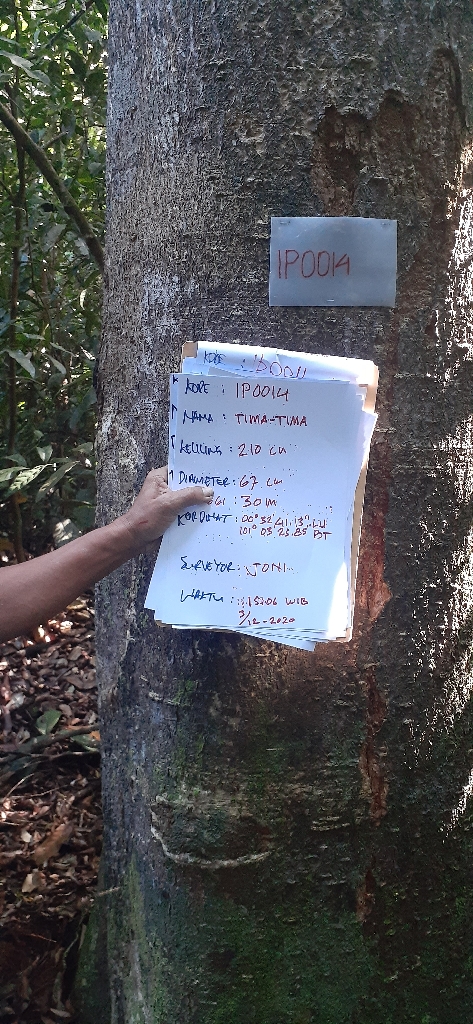 IP0014
KODE : IP0014
NAMA : TIMA-TIMA
KELILING : 210 CM
DIAMETER : 67 CM
GI : 30 M
KORDINAT : 00° 32' 41.13" LU
101° 03' 23.85" BT
SURVEYOR : JONI
WAKTU : 15:06 WIB
3/12-2020